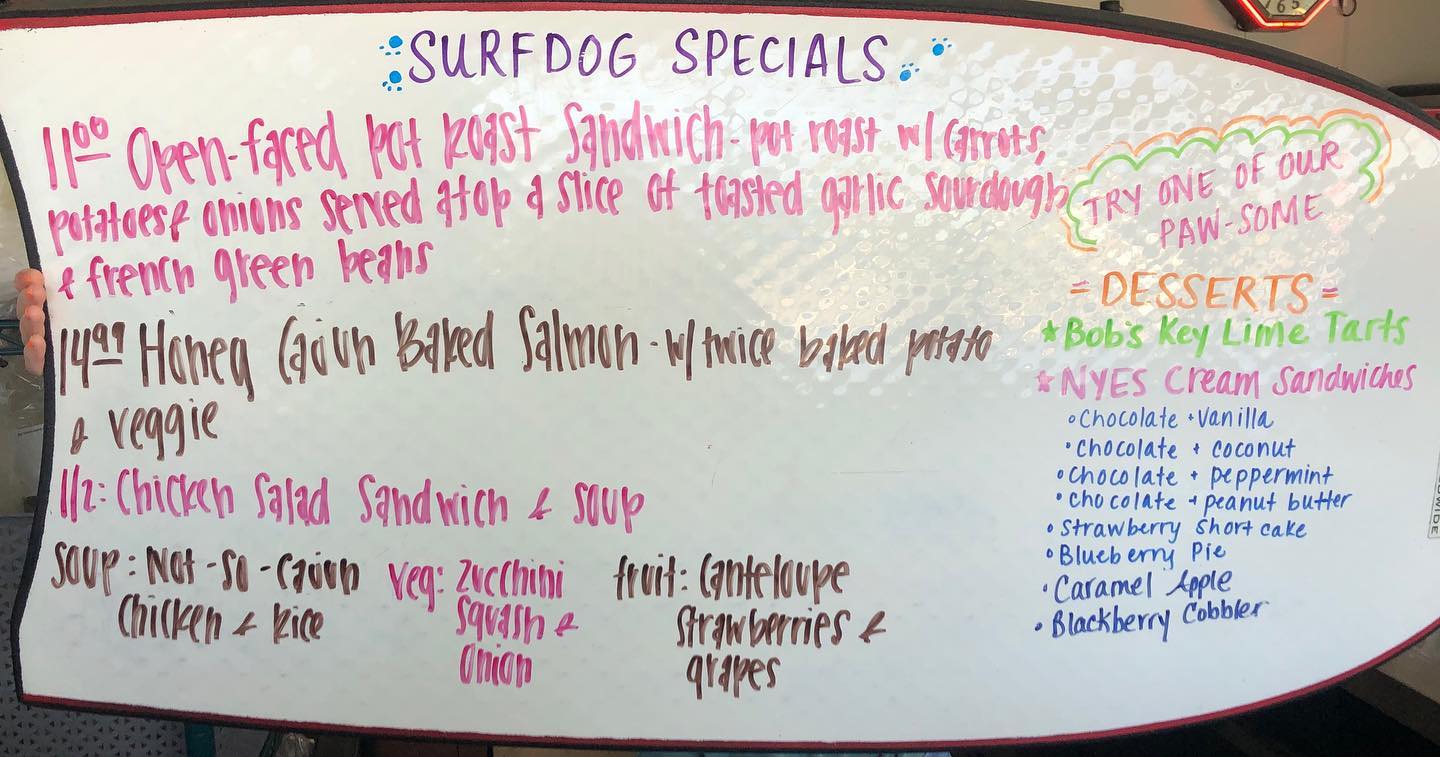 SURFDOG SPECIALS
11⁰⁰ Open-faced pot Roast Sandwich - pot roast w/ Carrots,
potatoes & onions served atop a slice of toasted garlic sourdough
& french green beans
14⁹⁹ Honey Cajun Baked Salmon - w/ twice baked potato
& veggie
1/2: Chicken Salad Sandwich & soup
soup: Not-so-Cajun
Chicken & Rice
veg: zucchini
squash &
onion
fruit: Canteloupe
strawberries &
grapes
TRY ONE OF OUR
PAW-SOME
= DESSERTS =
* Bob's Key Lime Tarts
* NYES Cream Sandwiches
• Chocolate + Vanilla
• Chocolate + coconut
• Chocolate + peppermint
• Chocolate + peanut butter
• Strawberry Short cake
• Blueberry Pie
• Caramel Apple
• Blackberry Cobbler
765